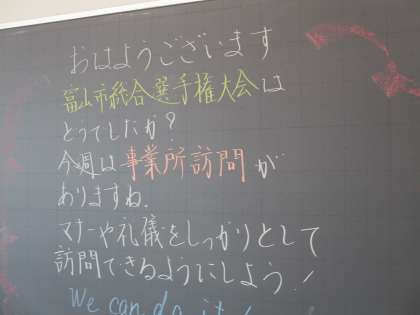 おはようございます
富山市総合選手権大会は
どうでしたか?
今週は事業所訪問が
ありますね.
マナーや礼儀をしっかりとして
訪問できるようにしよう!
We can do it!